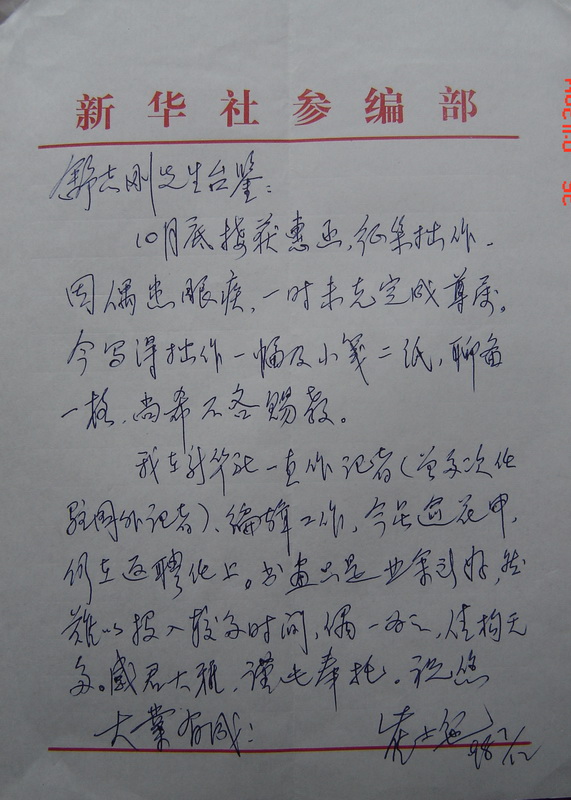 新华社参编部
舒志刚先生台鉴：
10月底接获惠函，征集拙作，
因偶患眼疾，一时未克完成尊嘱。
今写得拙作一幅及小笺二纸，聊备
一格，尚希不吝赐教。
我在新华社一直作记者（曾多次任
驻国外记者）、编辑工作，今虽逾花甲，
仍在返聘任上。书画只是业余爱好，然
难以投入较多时间，偶一为之，佳构无
多。感君大雅，谨此奉托。祝您
大业有成！